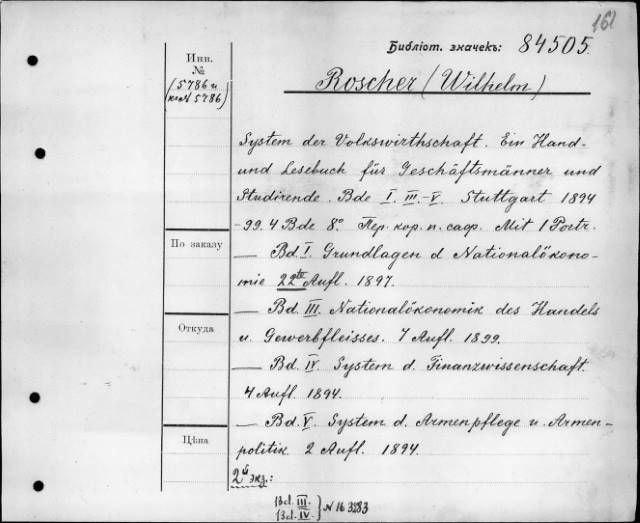 161
Библіот. значекъ: 84505.
Инв.
№
(5786 и
5786)
Roscher (Wilhelm)
System der Volkswirthschaft. Ein Hand-
und Lesebuch für Geschäftsmänner und
Studirende. Bde I. III.-V. Stuttgart 1894
-99. 4 Bde 8°. Пер. кор. п. саф. Mit 1 Portr.
По заказу
— Bd. I. Grundlagen d Nationalökono-
mie 22te Aufl. 1897.
— Bd. III. Nationalökonomik des Handels
Откуда
u. Gewerbfleisses. 7 Aufl. 1899.
— Bd. IV. System d. Finanzwissenschaft.
4 Aufl. 1894.
— Bd. V. System d. Armenpflege u. Armen-
Цѣна
politik. 2 Aufl. 1894.
2й экз:
Bd. III.
Bd. IV. } № 163283